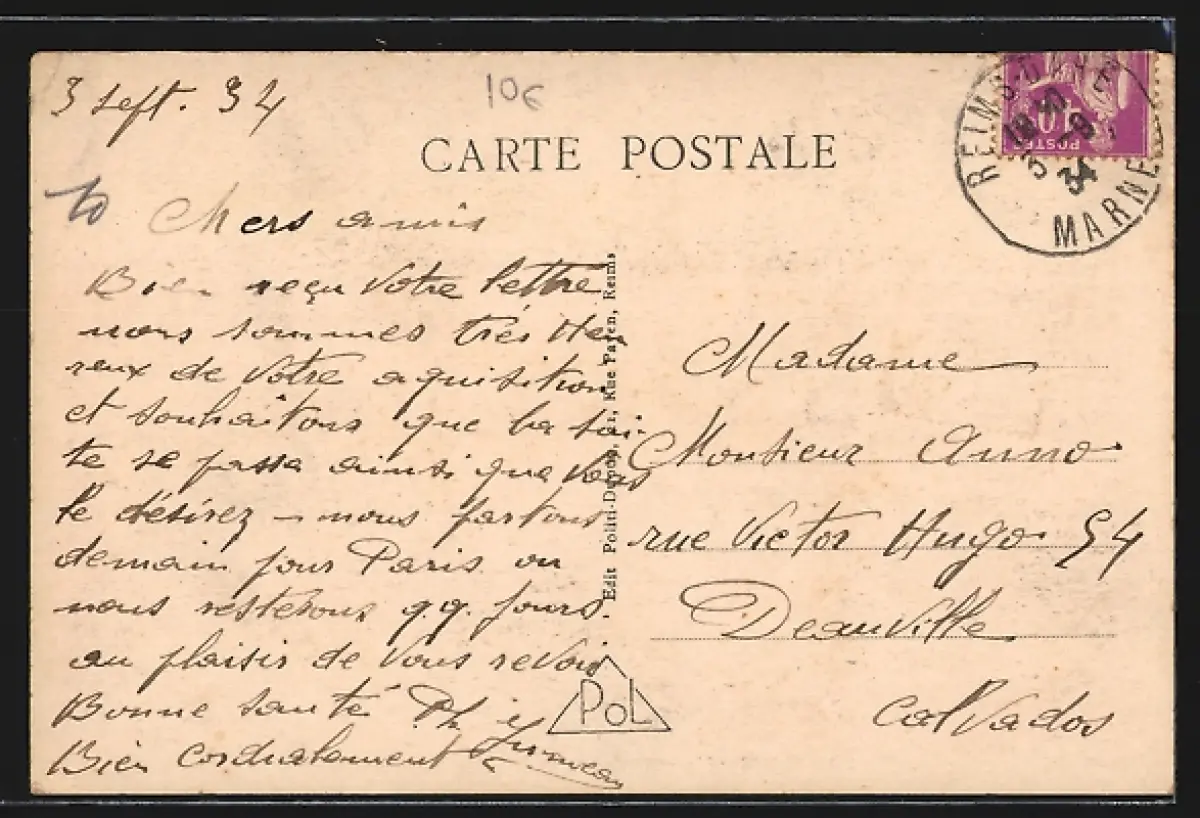 3 sept. 34
10€
CARTE POSTALE
REIMS
MARNE
18 30
3 -9
34
POSTES
40
to
Chers amis
Bien reçu votre lettre
nous sommes très Heu
reux de votre aquisition
et souhaitons que la sui-
te se passe ainsi que vous
le désirez – nous partons
demain pour Paris ou
nous resterons q.q. jours.
au plaisir de vous revoir
Bonne santé
Bien cordialement
Edit Pol
Rue Payen, Reims
PoL
Madame
Monsieur Anno
rue Victor Hugo 54
Deauville
Calvados